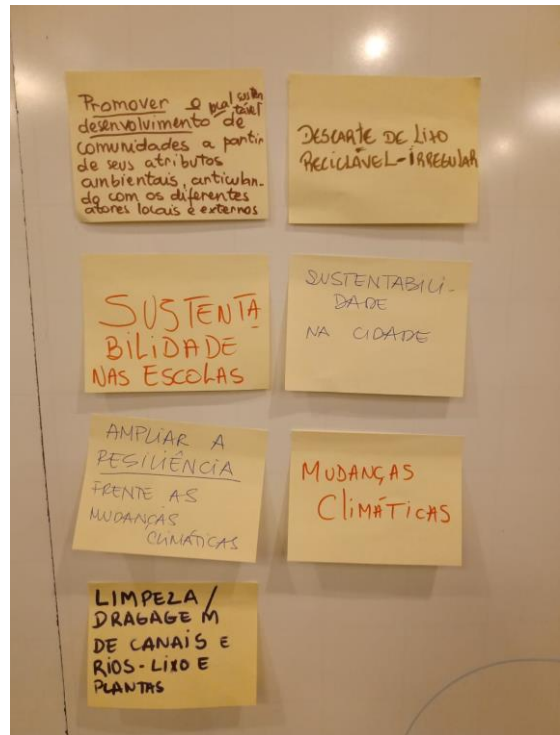 Promover o local susten
tável
desenvolvimento de
comunidades a partir
de seus atributos
ambientais, articulan-
do com os diferentes
atores locais e externos
DESCARTE DE LIXO
RECICLÁVEL-IRREGULAR
SUSTENTA
BILIDADE
NAS ESCOLAS
SUSTENTABILI-
DADE
NA CIDADE
AMPLIAR A
RESILIÊNCIA
FRENTE AS
MUDANÇAS
CLIMÁTICAS
MUDANÇAS
CLIMÁTICAS
LIMPEZA/
DRAGAGEM
DE CANAIS E
RIOS-LIXO E
PLANTAS